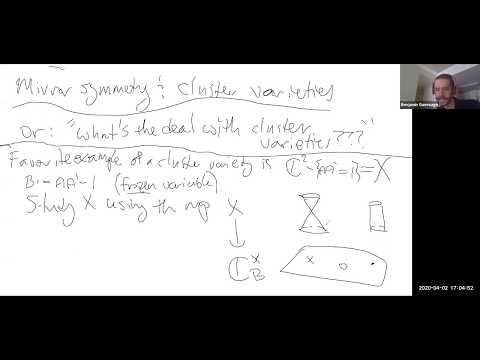 Mirror symmetry & cluster varieties
Or: "what's the deal with cluster varieties???"
Favorite example of a cluster variety is ℂ²-{AA'=1}=X
B:=AA'-1 (frozen variable).
Study X using the map X
↓
ℂ^x_B
x o
Benjamin Gammage
2020-04-02 17:04:52